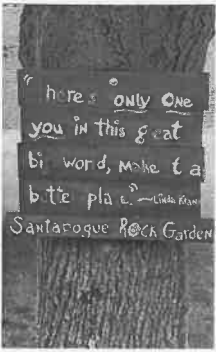 "here s only One
you in this g eat
bi word, make t a
b tte pla e." ~Linda
Santaroque Rock Garden